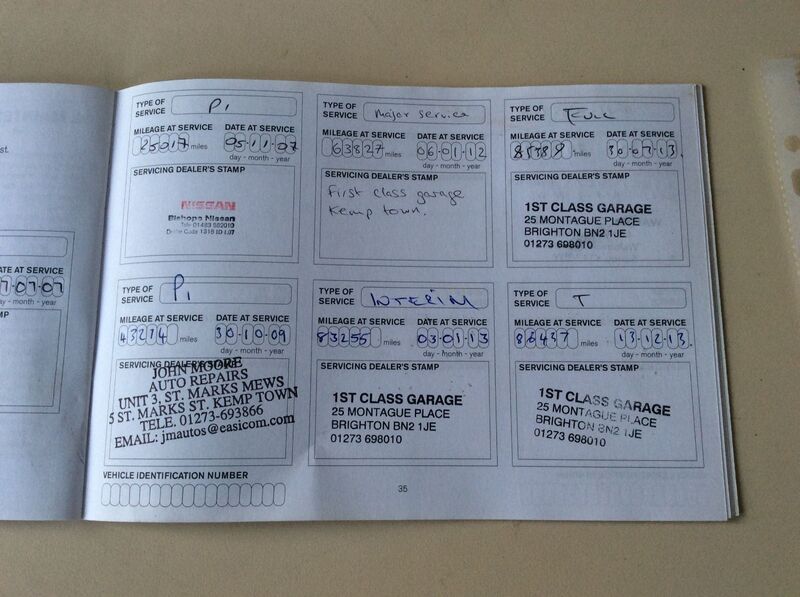 TYPE OF SERVICE P1
MILEAGE AT SERVICE DATE AT SERVICE
25017 miles 05-11-07
day - month - year
SERVICING DEALER'S STAMP
NISSAN
Bishops Nissan
TYPE OF SERVICE Major service
MILEAGE AT SERVICE DATE AT SERVICE
63827 miles 06-01-12
day - month - year
SERVICING DEALER'S STAMP
First class garage
Kemp town.
TYPE OF SERVICE FULL
MILEAGE AT SERVICE DATE AT SERVICE
miles 30-07-13.
day - month - year
SERVICING DEALER'S STAMP
1ST CLASS GARAGE
25 MONTAGUE PLACE
BRIGHTON BN2 1JE
01273 698010
ATE AT SERVICE
07-07
day - month - year
STAMP
TYPE OF SERVICE P1
MILEAGE AT SERVICE DATE AT SERVICE
43274 miles 30-10-09
day - month - year
SERVICING DEALER'S STAMP
JOHN MOORE
AUTO REPAIRS
UNIT 3, ST. MARKS MEWS
5 ST. MARKS ST. KEMP TOWN
TELE. 01273-693866
EMAIL: jmautos@easicom.com
TYPE OF SERVICE INTERIM
MILEAGE AT SERVICE DATE AT SERVICE
83255 miles 03-01-13
day - month - year
SERVICING DEALER'S STAMP
1ST CLASS GARAGE
25 MONTAGUE PLACE
BRIGHTON BN2 1JE
01273 698010
TYPE OF SERVICE T
MILEAGE AT SERVICE DATE AT SERVICE
86437 miles 13-12-13.
day - month - year
SERVICING DEALER'S STAMP
1ST CLASS GARAGE
25 MONTAGUE PLACE
BRIGHTON BN2 1JE
01273 698010
VEHICLE IDENTIFICATION NUMBER
35